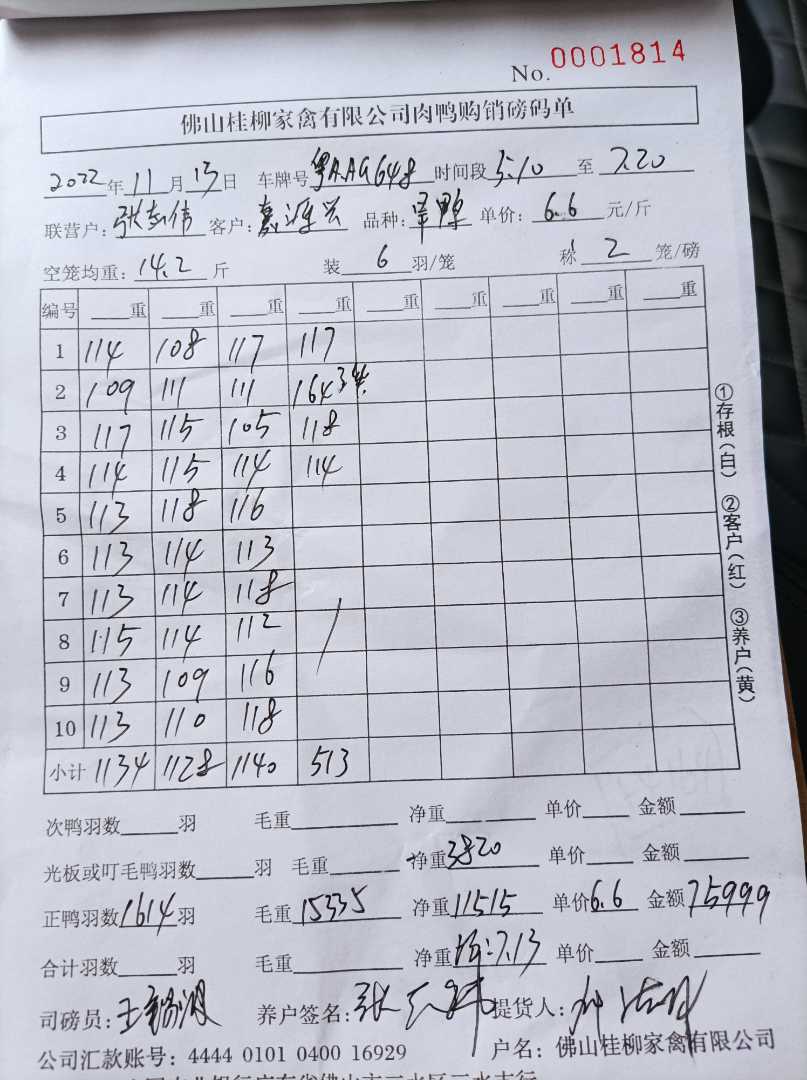 No. 0001814
佛山桂柳家禽有限公司肉鸭购销磅码单
2022年11月13日 车牌号粤AAG648 时间段5:10至7.20
联营户: 张志伟 客户: 源兴 品种: 鸭 单价: 6.6 元/斤
空笼均重: 14.2 斤 装 6 羽/笼 称 2 笼/磅
编号 重 重 重 重 重 重 重 重 重
1 114 108 117 117
2 109 111 111 164
3 117 115 105 118
4 114 115 114 114
5 113 118 116
6 113 114 113
7 113 114 118
8 115 114 112
9 113 109 116
10 113 110 118
小计 1134 1128 1140 513
次鸭羽数 羽 毛重 净重 单价 金额
光板或叮毛鸭羽数 羽 毛重 净重3820 单价 金额
正鸭羽数1614羽 毛重15335 净重11515 单价6.6 金额75999
合计羽数 羽 毛重 净重均:7.13 单价 金额
司磅员: 王 养户签名: 张 提货人:
公司汇款账号: 4444 0101 0400 16929 户名: 佛山桂柳家禽有限公司
①存根(白) ②客户(红) ③养户(黄)